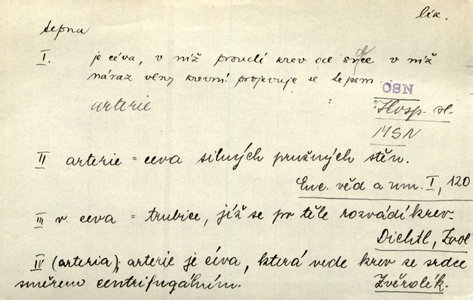 lék.
tepna
I. je céva, v níž proudí krev od srdce v níž
náraz vlny krevní projevuje se tepem.
OSN
arterie
Hosp. sl.
MSN
II arterie = ceva silných pružných stěn.
Enc. věd a um. I, 120
III v ceva = trubice, jíž se po těle rozvádí krev.
Dichtl, Zool
IV (arteria), arterie je céva, která vede krev se srdce
směrem centrifugálním.
Zvěrolék.